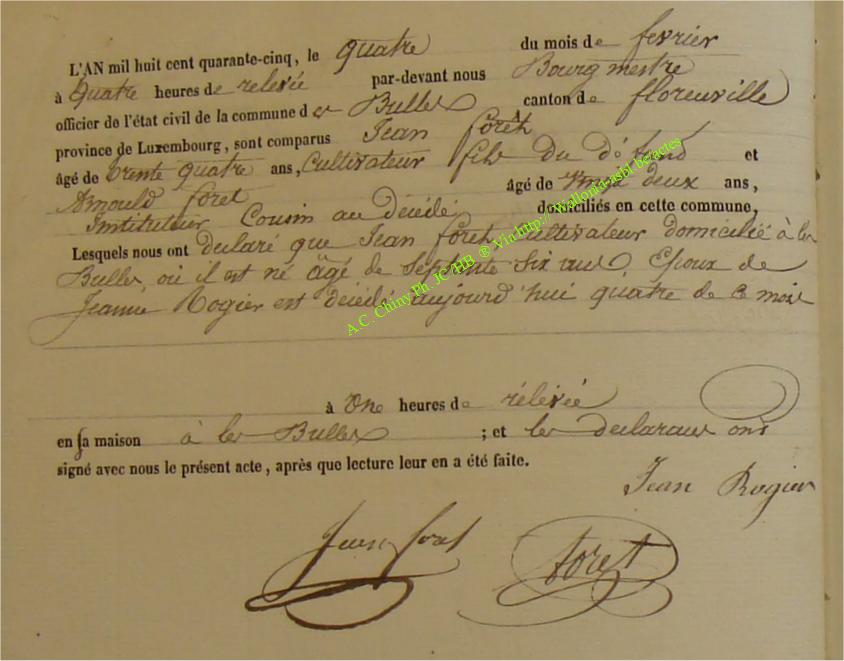 L'AN mil huit cent quarante-cinq, le quatre du mois de fevrier
à quatre heures de relevée par-devant nous Bourgmestre
officier de l'état civil de la commune des Bulles canton de florenville
province de Luxembourg, sont comparus Jean forêt
âgé de trente quatre ans, Cultivateur fils du dé et
Arnould foret âgé de vingt deux ans,
Instituteur Cousin au décédé domiciliés en cette commune,
Lesquels nous ont declaré que Jean forêt, cultivateur domicilié à les
Bulles, où il est né âgé de Septante Six ans, Epoux de
Jeanne Rogier est décédé aujourd'hui quatre de ce mois
à One heures de rélévée
en sa maison à les Bulles ; et les declarans ont
signé avec nous le présent acte, après que lecture leur en a été faite.
Jean Rogier
Jean foret foret
A.C. Chiny Ph. JC HB ® Vin http://Wallonia-asbl.be/actes